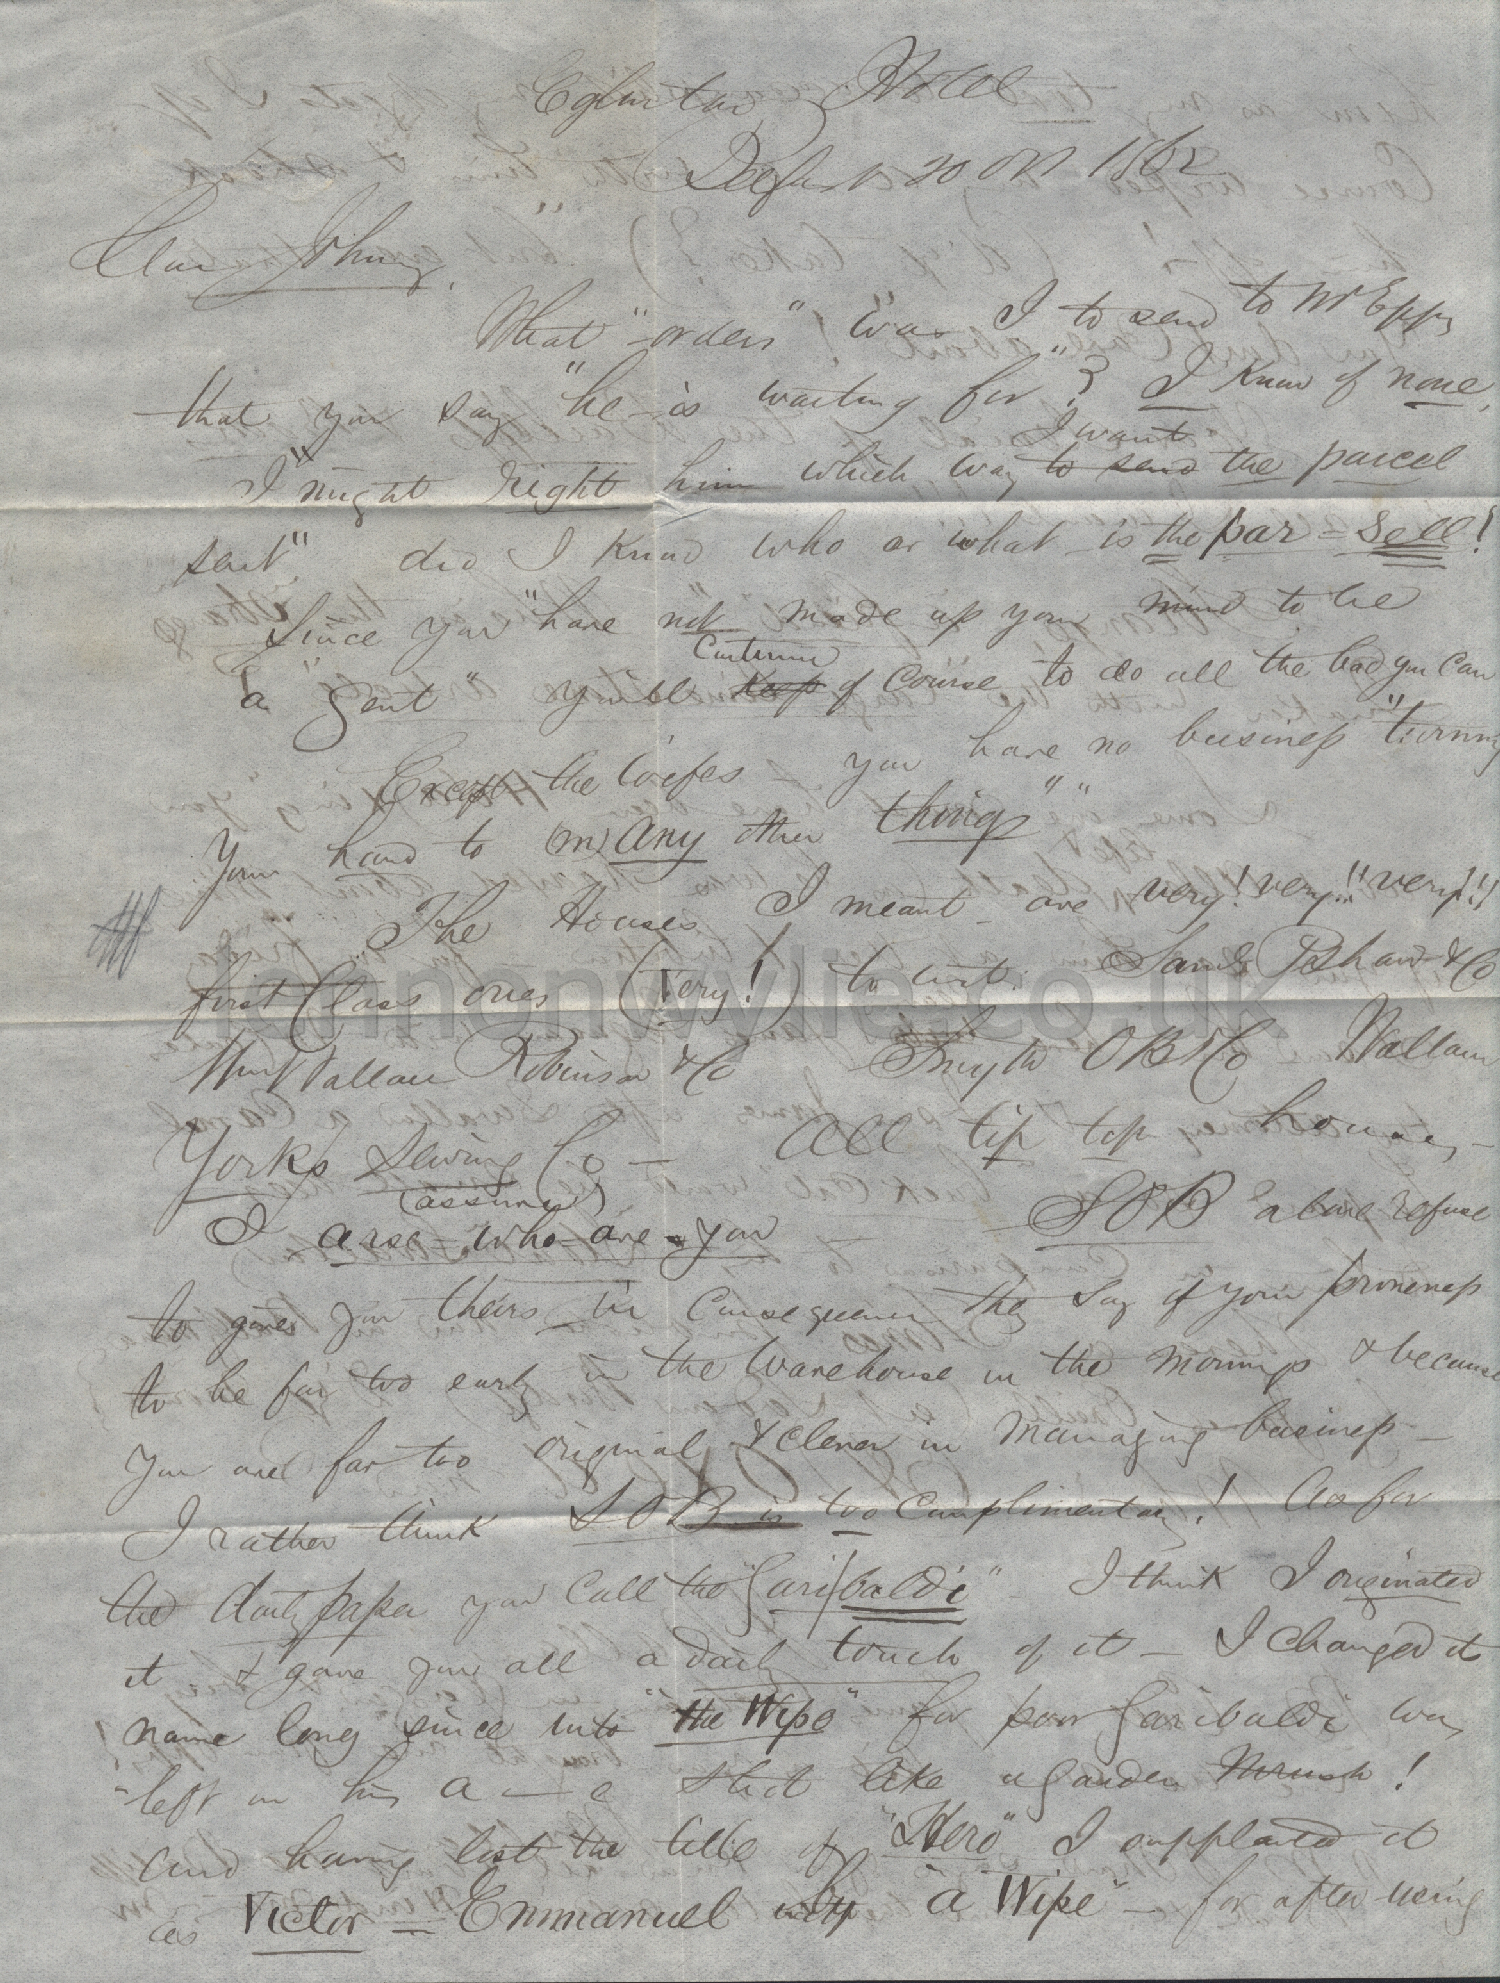 Eglinton Hotel
Belfast 20 Oct 1862
Dear Johnny,
What "orders" "was I to send to Mr Epps
that you say "he is waiting for"? I know of none,
I "might right him which way I want to send the parcel
sent" did I know who or what is the par = Sell!
Since you "have not made up your mind to be
a "Gent" you'll Keep Continue of course to do all the bad you can
Except the Wifes - you have no business "turning
your hand to (m) any other things" "
The Houses I meant - are very! very!! very!!!
first Class ones (Very!) to wit. Saml & Co
Wm Wallace Robinson & Co Smyth OB & Co William
York's Sewing Co — All tip top houses -
I arse - who - are - you (assume) SOB above refuse
to give you theirs in consequence they say of your proneness
to be far too early in the Warehouse in the mornings & because
you are far too original & clever in managing business —
I rather think SOB is too complimentary! As for
the daily paper you call the "Garibaldi" - I think I originated
it & gave you all a daily touch of it — I changed it
name long since into "the Wipe" for poor Garibaldi was
left on his a — e shot like a garden thrush!
and having lost the title of "Hero" I supplanted it
as Victor = Emmanuel "a Wipe" — for after using
lennonwylie.co.uk